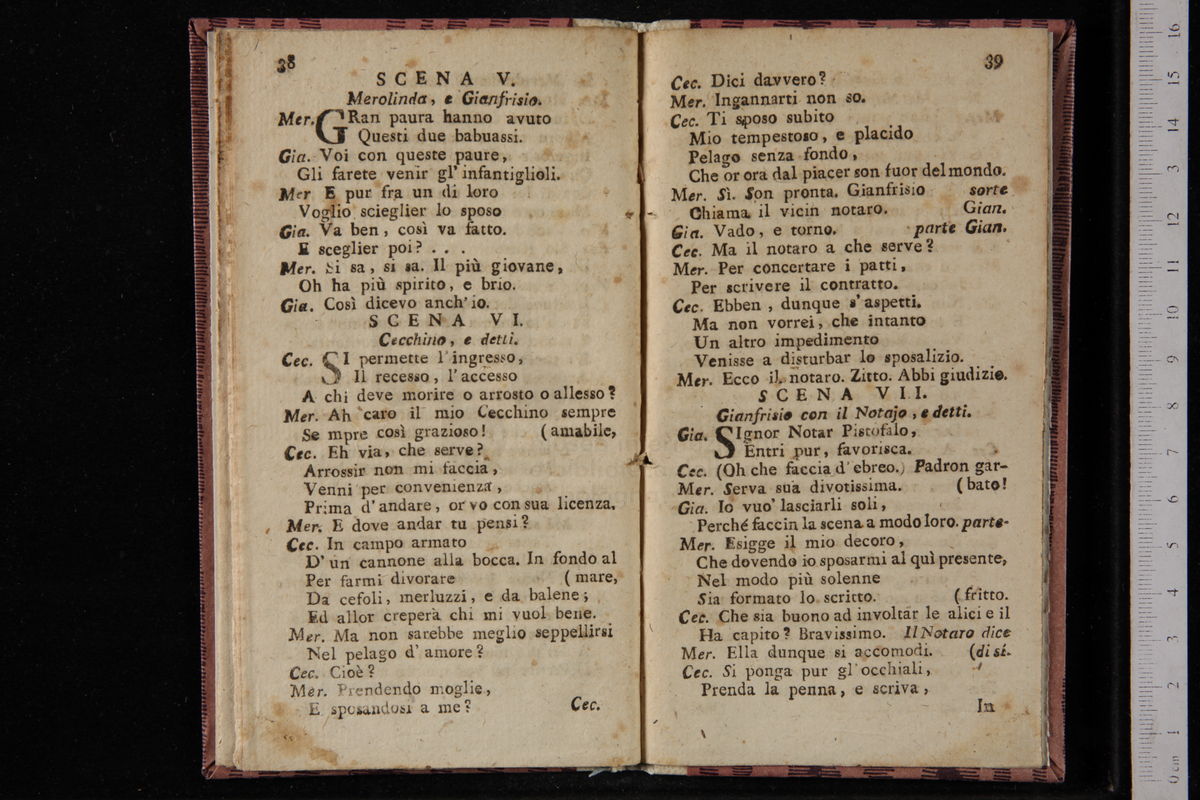 38
SCENA V.
Merolinda, e Gianfrisio.
Mer. GRan paura hanno avuto
Questi due babuassi.
Gia. Voi con queste paure,
Gli farete venir gl' infantiglioli.
Mer E pur fra un di loro
Voglio scieglier lo sposo
Gia. Va ben, così va fatto.
E sceglier poi? . . .
Mer. Si sa, si sa. Il più giovane,
Oh ha più spirito, e brio.
Gia. Così dicevo anch'io.
SCENA VI.
Cecchino, e detti.
Cec. SI permette l'ingresso,
Il recesso, l'accesso
A chi deve morire o arrosto o allesso?
Mer. Ah caro il mio Cecchino sempre
Se mpre così grazioso! (amabile,
Cec. Eh via, che serve?
Arrossir non mi faccia,
Venni per convenienza,
Prima d'andare, or vo con sua licenza.
Mer. E dove andar tu pensi?
Cec. In campo armato
D' un cannone alla bocca. In fondo al
Per farmi divorare (mare,
Da cefoli, merluzzi, e da balene;
Ed allor creperà chi mi vuol bene.
Mer. Ma non sarebbe meglio seppellirsi
Nel pelago d' amore?
Cec. Cioè?
Mer. Prendendo moglie,
E sposandosi a me?
Cec.
39
Cec. Dici davvero?
Mer. Ingannarti non so.
Cec. Ti sposo subito
Mio tempestoso, e placido
Pelago senza fondo,
Che or ora dal piacer son fuor del mondo.
Mer. Sì. Son pronta. Gianfrisio sorte
Chiama il vicin notaro. Gian.
Gia. Vado, e torno. parte Gian.
Cec. Ma il notaro a che serve?
Mer. Per concertare i patti,
Per scrivere il contratto.
Cec. Ebben, dunque s' aspetti.
Ma non vorrei, che intanto
Un altro impedimento
Venisse a disturbar lo sposalizio.
Mer. Ecco il notaro. Zitto. Abbi giudizio.
SCENA VII.
Gianfrisio con il Notajo, e detti.
Gia. SIgnor Notar Pistofalo,
Entri pur, favorisca.
Cec. (Oh che faccia d' ebreo.) Padron gar-
Mer. Serva sua divotissima. (bato!
Gia. Io vuo' lasciarli soli,
Perché faccin la scena a modo loro. parte-
Mer. Esigge il mio decoro,
Che dovendo io sposarmi al quì presente,
Nel modo più solenne
Sia formato lo scritto. (fritto.
Cec. Che sia buono ad involtar le alici e il
Ha capito? Bravissimo. Il Notaro dice
Mer. Ella dunque si accomodi. (di sí.
Cec. Si ponga pur gl'occhiali,
Prenda la penna, e scriva,
In
0 cm 1 2 3 4 5 6 7 8 9 10 11 12 13 14 15 16